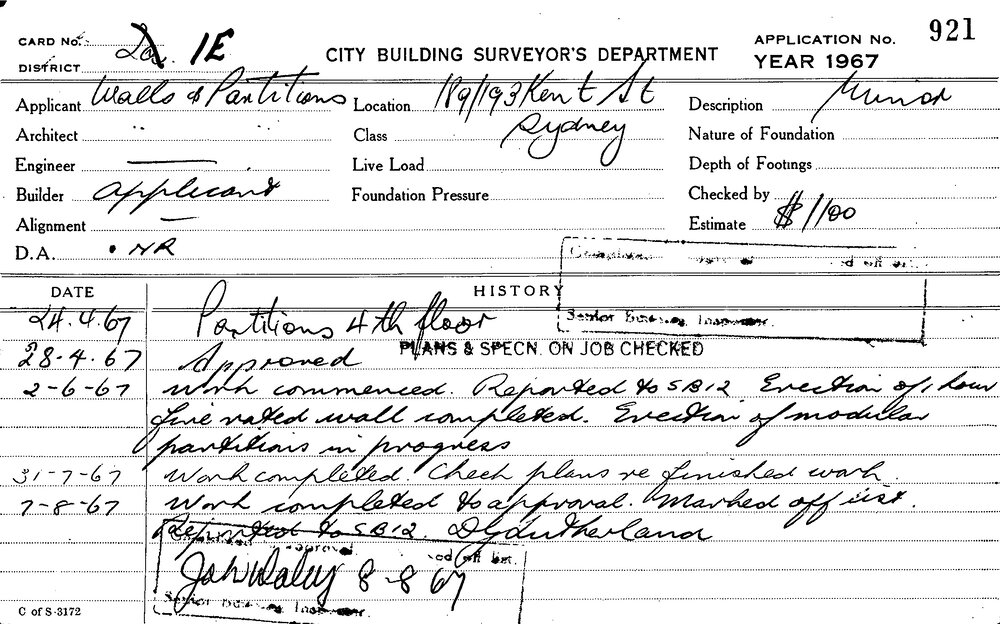 CARD No. 1E
DISTRICT
CITY BUILDING SURVEYOR'S DEPARTMENT
APPLICATION No. 921
YEAR 1967
Applicant Walls & Partitions
Location 189/193 Kent St
Sydney
Description Minor
Architect
Class
Nature of Foundation
Engineer
Live Load
Depth of Footings
Builder Applicant
Foundation Pressure
Checked by
Alignment —
Estimate $1100
D.A. NR
DATE
HISTORY
Senior Building Inspector.
24.4.67 Partitions 4th floor
28-4.67 Approved
PLANS & SPECN. ON JOB CHECKED
2-6-67 Work commenced. Reported to SB12 Erection of 1 hour
fire rated wall completed. Erection of modular
partitions in progress
31-7-67 Work completed. Check plans re finished work.
7-8-67 Work completed to approval. Marked off list.
Reported to SB12. Sutherland
approval ed off list.
John Daley 8-8 67
Senior Building Inspector.
C of S-3172